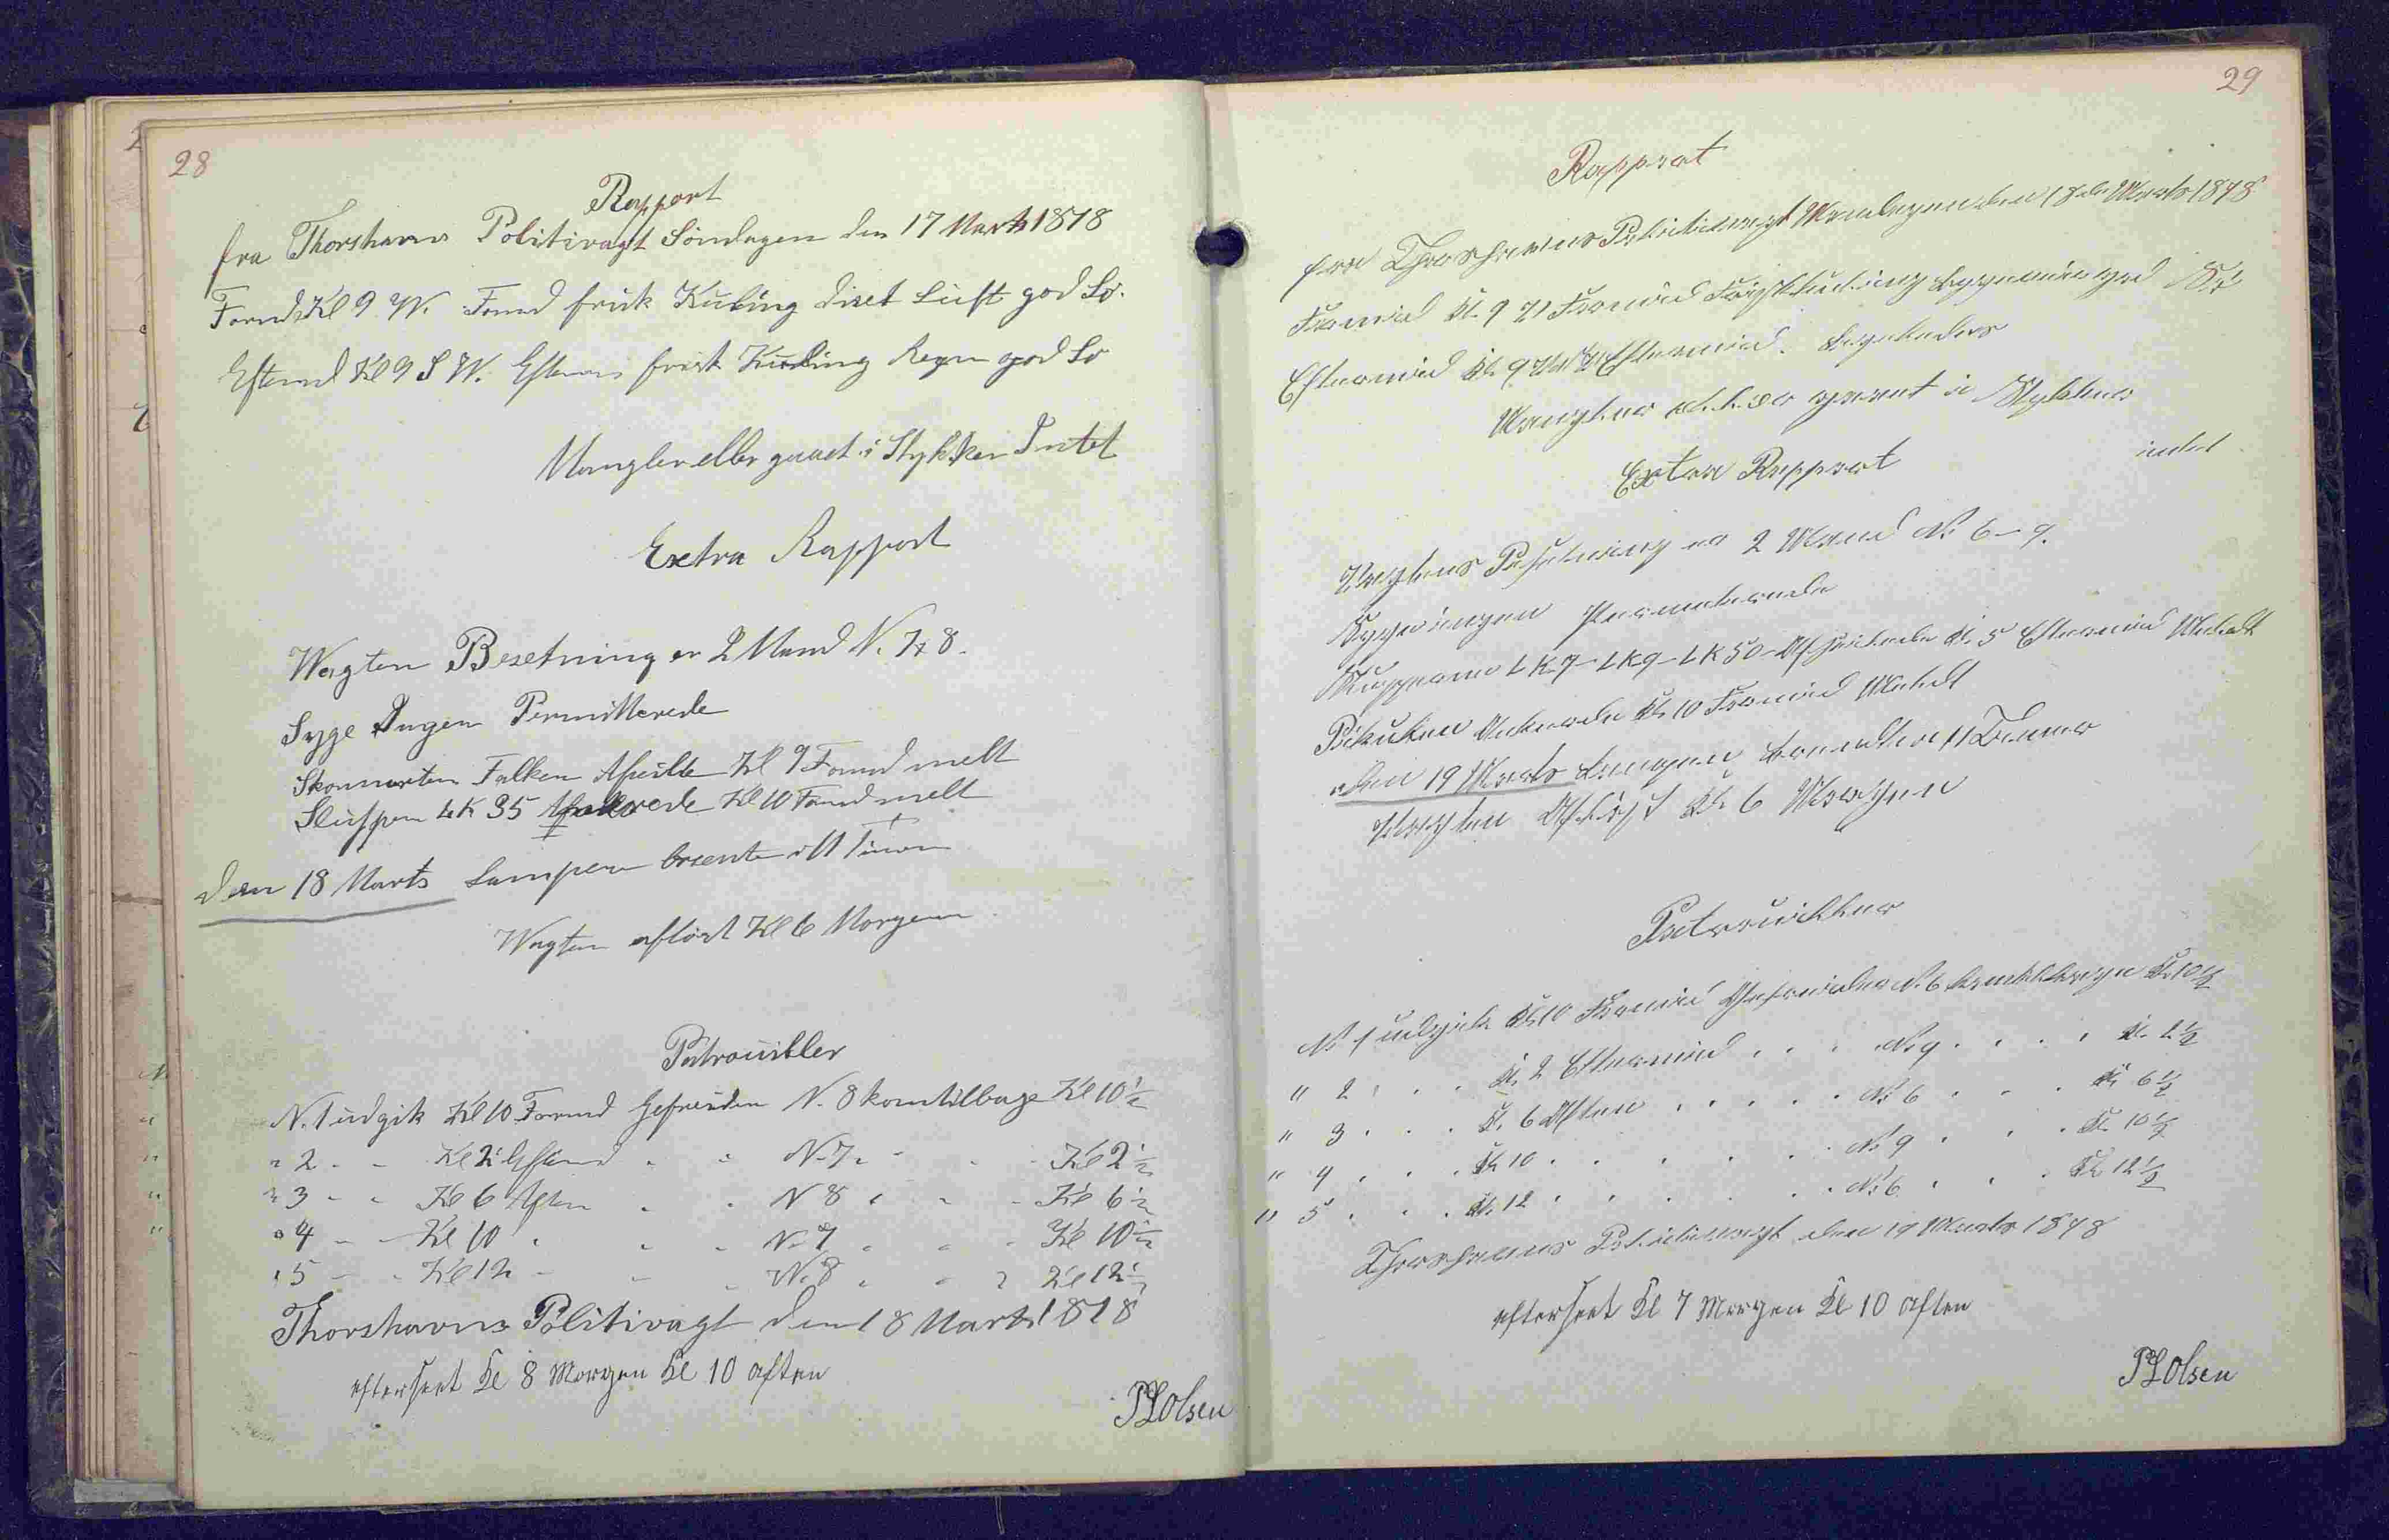 28
Rapport
fra Thorshavns Politivagt Söndagen den 17 Marts 1878
Formd Kl 9 W. Formd frisk Kuling diset Luft god Sö.
Eftermd Kl 9 S W. Efterm frisk Kuling Regn god Sö
Mangler eller gaaet i Stykker Intet
Extra Rapport
Wagten Besetning er 2 Mand N. 7 & 8.
Syge Ingen Permitterede
Skonnerten Falken Afseilte Kl 9 Formd melt
Sluppen LK 35 Kl 10 Formd melt
den 18 Marts Lampen brænte i 11 Timer
Wagten aflöst Kl 6 Morgen
Patrouiller
N. 1 udgik Kl 10 Formd Gefreiden N. 8 kom tilbage Kl 10 ½
" 2 - - Kl 2 Eftmd " " N. 7 " " - Kl 2 ½
" 3 - - Kl 6 Aften " " N 8 " " - Kl 6 ½
" 4 - - Kl 10 " " " N. 7 " " - Kl 10 ½
" 5 - - Kl 12 - " " N. 8 " " " Kl 12 ½
Thorshavns Politivagt den 18 Marts 1878
efterseet Kl 8 Morgen Kl 10 aften
PLOlsen
29
Rapport
fra Thorshavns Politivagt Mandagen den 18de Marts 1878
Formid Kl. 9 Formid god Sö
Eftermid Kl. 9 Eftermid.
Mangler eller gaaet i Stykker
intet
Extra Rapport
Vagtens Besetning er 2 Mand No 6 - 9.
Syge ingen Permiterede
Slupperne LK 7 - LK 9 - LK 50 - Afseilede Kl. 5 Eftermid Meldt
Ankrede Kl. 10 Formid Meldt
den 19 Marts Lampen brændte i 11 Timer
Vagten Aflöst Kl. 6 Morgen
Patrouiller
No 1 udgik Kl. 10 Formid Gefreider No 6 kom tilbage Kl. 10 ½
" 2 . . . Kl. 2 Eftermid . . . No 9 . . . . Kl. 2 ½
" 3 . . . Kl. 6 Aften . . . . . No 6 . . . Kl. 6 ½
" 4 . . . Kl. 10 . . . . . . No 9 . . . Kl. 10 ½
" 5 . . . Kl. 12 . . . . . . No 6 . . . Kl. 12 ½
Thorshavns Politivagt den 19 Marts 1878
efterseet Kl 7 Morgen Kl 10 aften
PLOlsen